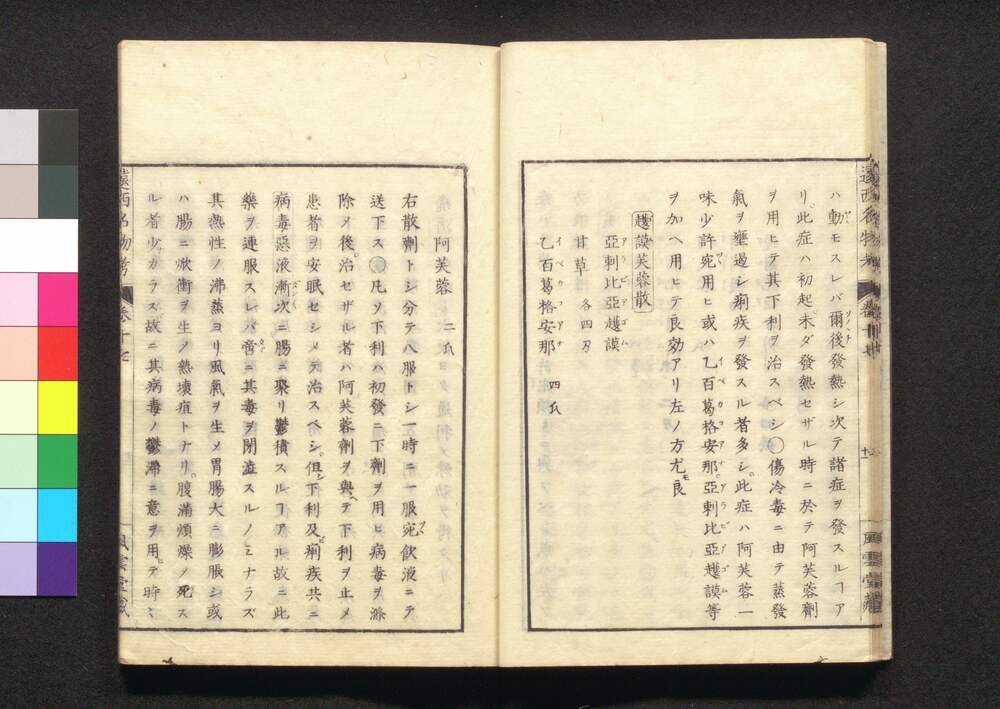 ハ動モスレバ爾後發熱シ次テ諸症ヲ發スルヿア
リ此症ハ初起未ダ發熱セザル時ニ於テ阿芙蓉劑
ヲ用ヒテ其下利ヲ治スベシ〇傷冷毒ニ由テ蒸發
氣ヲ壅遏シ痢疾ヲ發スル者多シ此症ハ阿芙蓉一
味少許宛用ヒ或ハ乙百葛格安那亞刺比亞護謨等
ヲ加ヘ用ヒテ良効アリ左ノ方尤良
護謨芙蓉散
亞刺比亞護謨
甘草 各四刄
乙百葛格安那 四瓜
阿芙蓉 二瓜
右散劑トシ分テ八服トシ一時ニ一服宛飲液ニテ
送下ス〇凡ソ下利ハ初發ニ下劑ヲ用ヒ病毒ヲ滌
除メ後治セザル者ハ阿芙蓉劑ヲ與テ下利ヲ止メ
患者ヲ安眠セシメテ治スベシ但シ下利及痢疾共ニ
病毒惡液漸次ニ腸ニ聚リ鬱積スルヿアル故ニ此
藥ヲ連服スレバ啻ニ其毒ヲ閉澁スルノミナラズ
其熱性ノ沸蒸ヨリ風氣ヲ生メ胃腸大ニ膨脹シ或
ハ腸ニ焮衝ヲ生メ熱壞疽トナリ腹滿煩燥メ死ス
ル者少カラズ故ニ其病毒ノ鬱滯ニ意ヲ用テ時々
遠西名物考
風雲堂藏